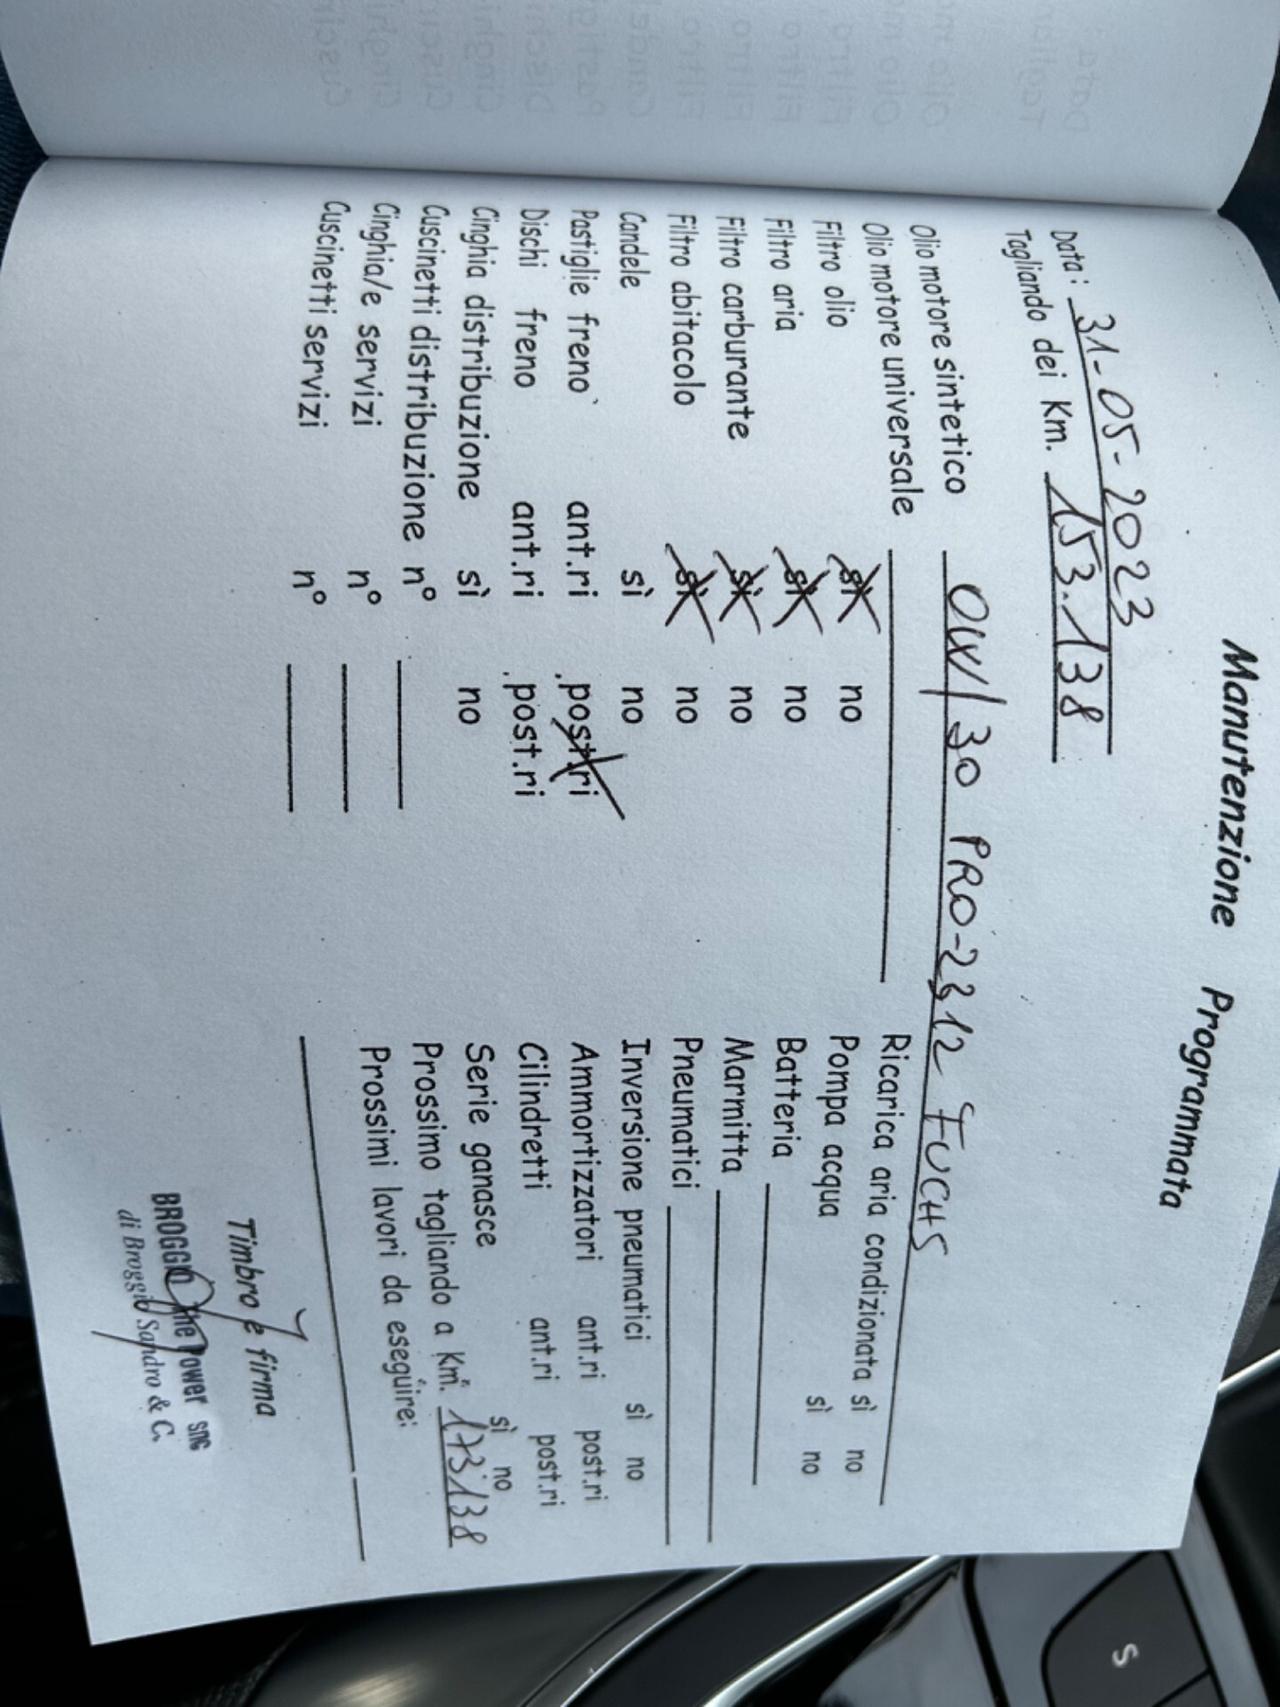 Manutenzione Programmata
Data: 31-05-2023
Tagliando dei Km. 153.138
Olio motore sintetico 0W/30 PRO-2312 FUCHS
Olio motore universale
Filtro olio sì no
Filtro aria sì no
Filtro carburante sì no
Filtro abitacolo sì no
Candele sì no
Pastiglie freno ant.ri post.ri
Dischi freno ant.ri post.ri
Cinghia distribuzione sì no
Cuscinetti distribuzione n°
Cinghia/e servizi n°
Cuscinetti servizi n°
Ricarica aria condizionata sì no
Pompa acqua sì no
Batteria
Marmitta
Pneumatici
Inversione pneumatici sì no
Ammortizzatori ant.ri post.ri
Cilindretti ant.ri post.ri
Serie ganasce sì no
Prossimo tagliando a Km. 173.138
Prossimi lavori da eseguire:
Timbro e firma
BROGGIO the Power snc
di Broggio Sandro & C.
S